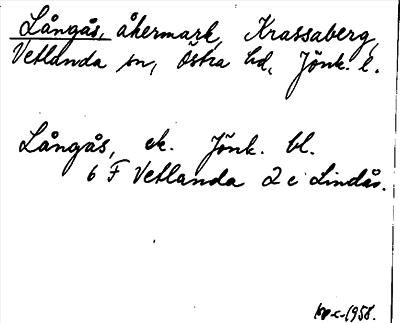 Långås, åkermark, Krassaberg,
Vetlanda sn, Östra hd, Jönk. l.
Långås, ek. Jönk. bl.
6 F Vetlanda 2 c Lindås.
1958.